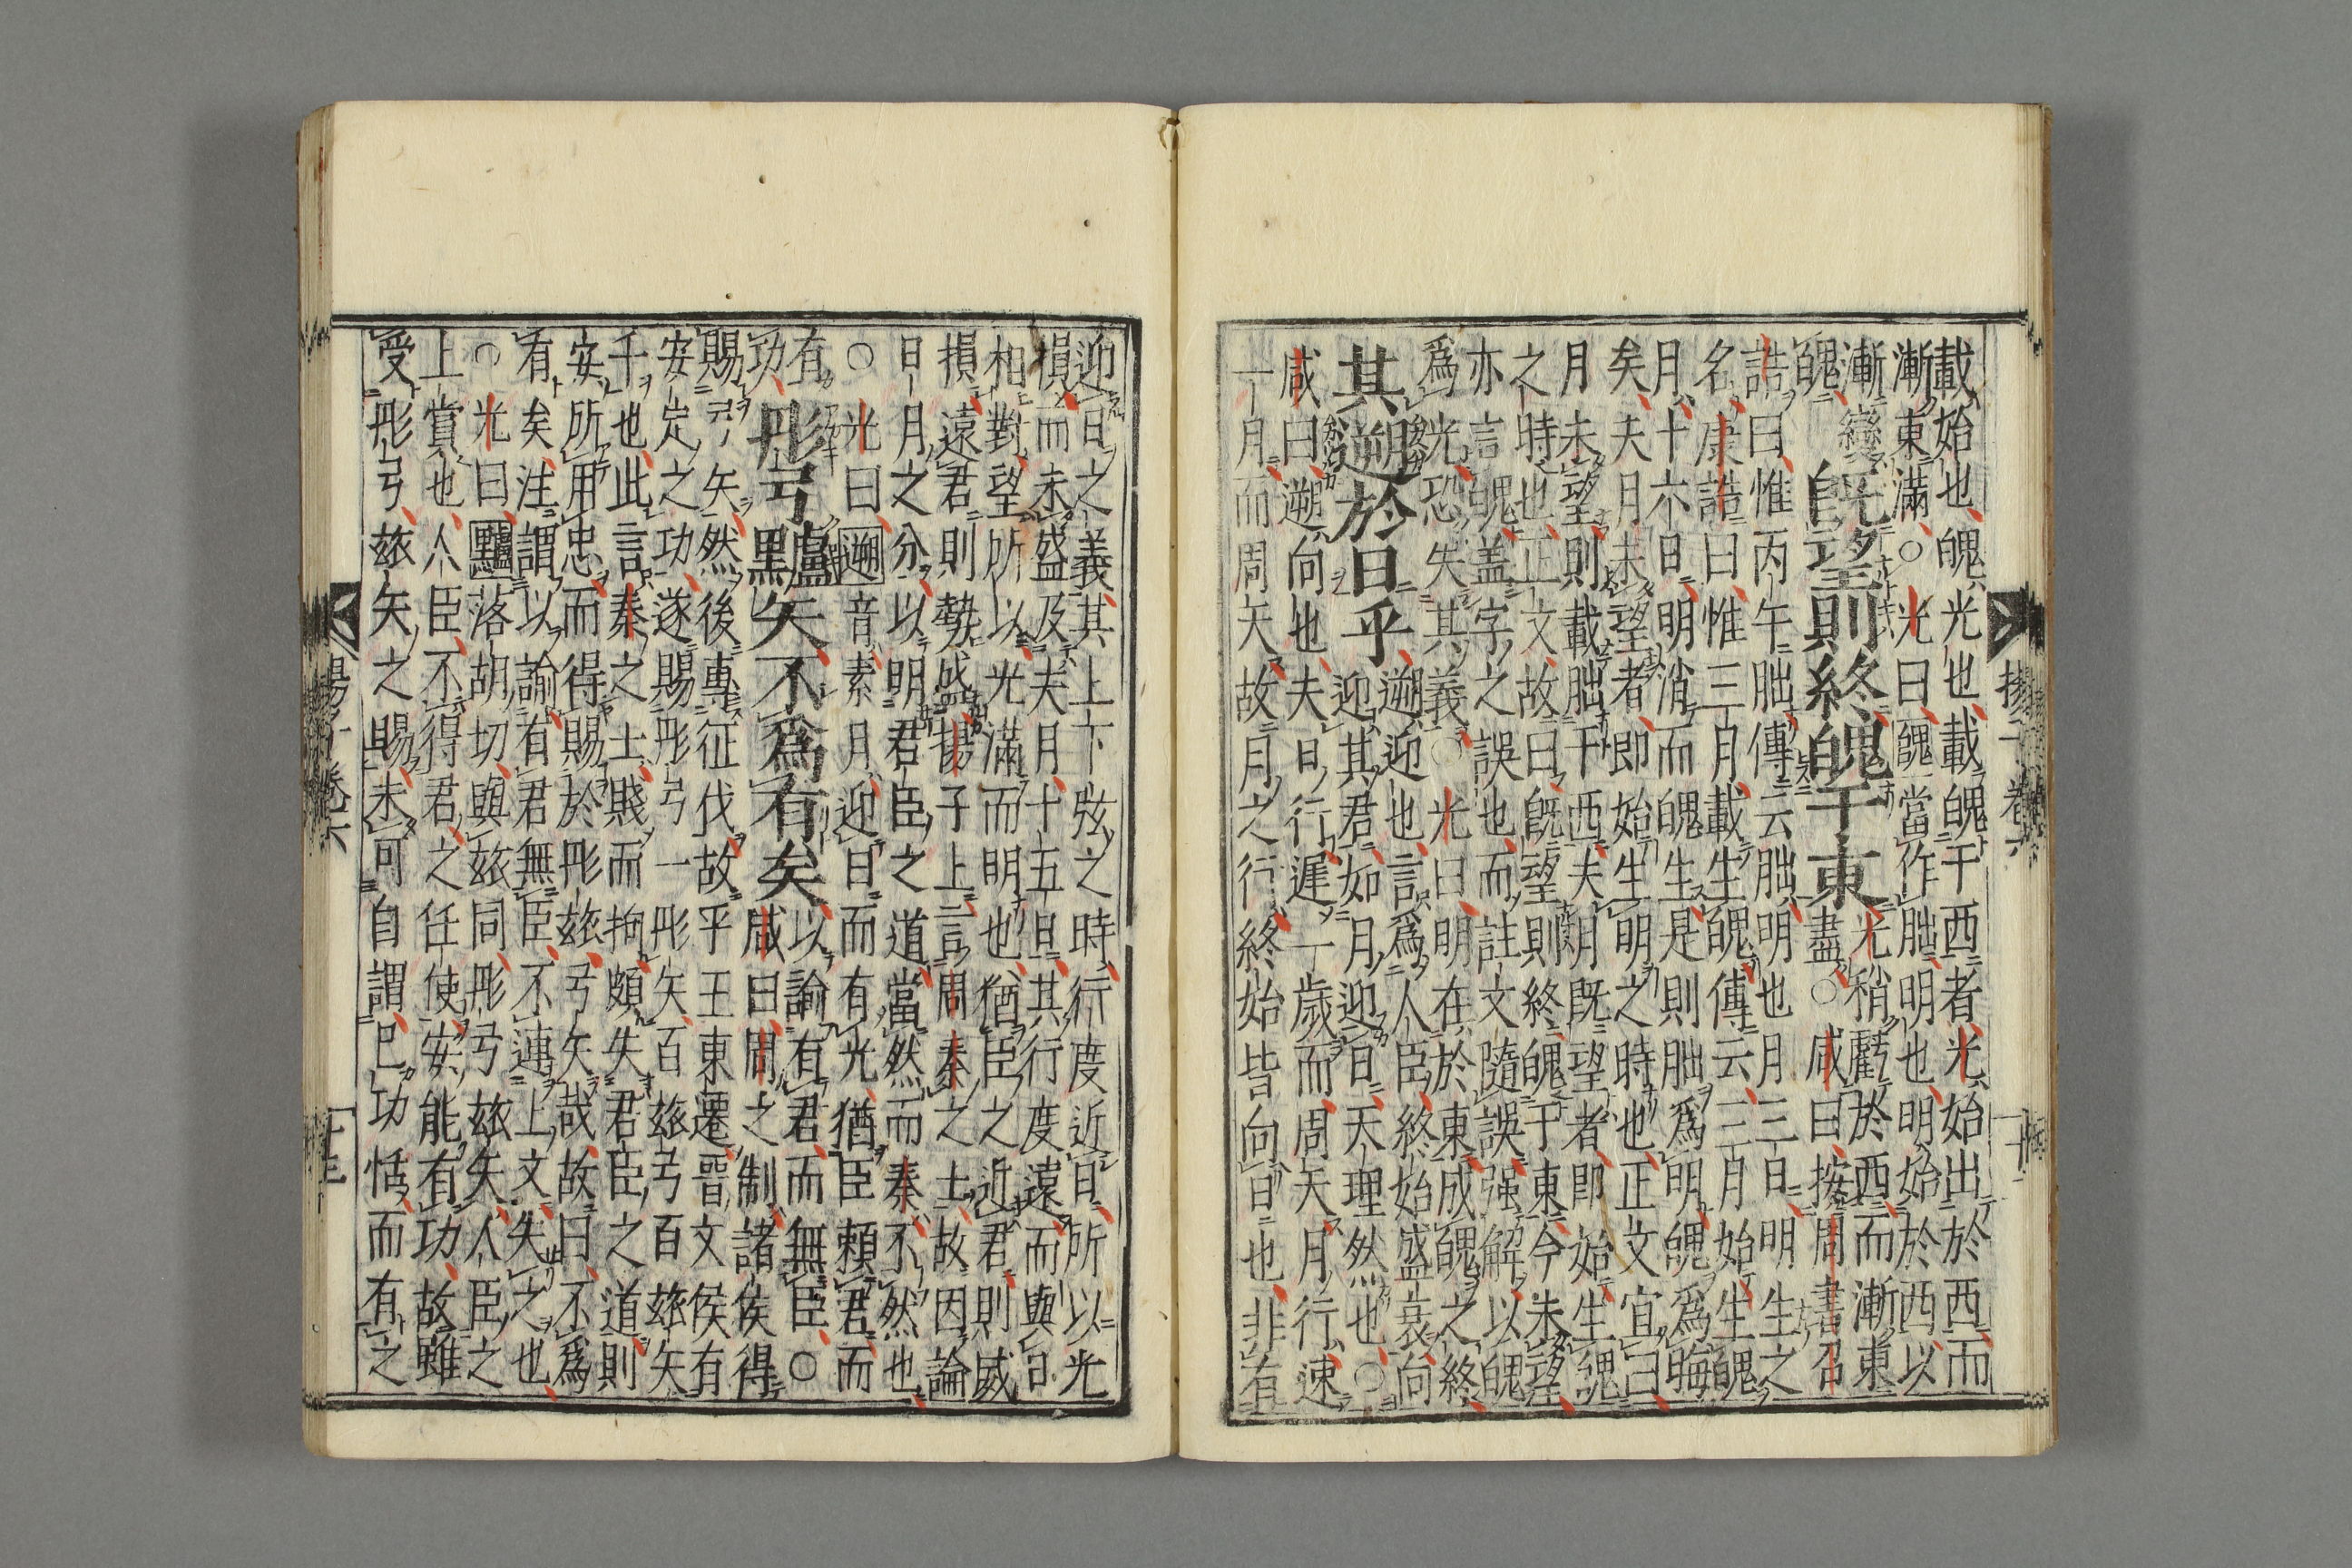 載始也魄光也載魄于西者光始出於西而
漸東滿○光曰魄當作朏明也明始於西以
漸變
魄
既望則終魄于東
光稍虧於西而漸東
盡○咸曰按周書召
誥曰惟丙午朏傳云朏明也月三日明生之
名康誥曰惟三月載生魄傳云三月始生魄
月十六日明消而魄生是則朏爲明魄爲晦
矣夫月未望者即始生明之時也正文宜曰
月未望則載朏于西夫月既望者即始生魄
之時也正文故曰既望則終魄于東今未望
亦言魄盖字之誤也而註文隨誤强解以魄
爲光恐失其義○光曰明在於東成魄之終
其遡於日乎
遡迎也言爲人臣終始盛衰向
迎其君如月迎日天理然也○
咸曰遡向也夫日行遲一歲而周天月行速
一月而周天故月之行終始皆向日也非有
揚子卷六
迎日之義其上下弦之時行度近日所以光
損而未盛及夫月十五日其行度遠而與日
相對望所以光滿而明也猶臣之近君則威
損遠君則勢盛揚子上言周秦之士故因論
日月之分以明君臣之道當然而秦不然也
○光曰遡音素月迎日而有光猶臣頼君而
有
功
彤弓黸矢不爲有矣
以諭有君而無臣○
咸曰周之制諸侯得
賜弓矢然後專征伐故平王東遷晉文侯有
安定之功遂賜彤弓一彤矢百玈弓百玈矢
千也此言秦之士賤而拘頗失君臣之道則
安所用忠而得賜於彤玈弓矢哉故曰不爲
有矣注謂以諭有君無臣不連上文失之也
○光曰黸落胡切與玈同彤弓玈矢人臣之
上賞也人臣不得君之任使安能有功故雖
受彤弓玈矢之賜未可自謂己功恬而有之
揚子卷六